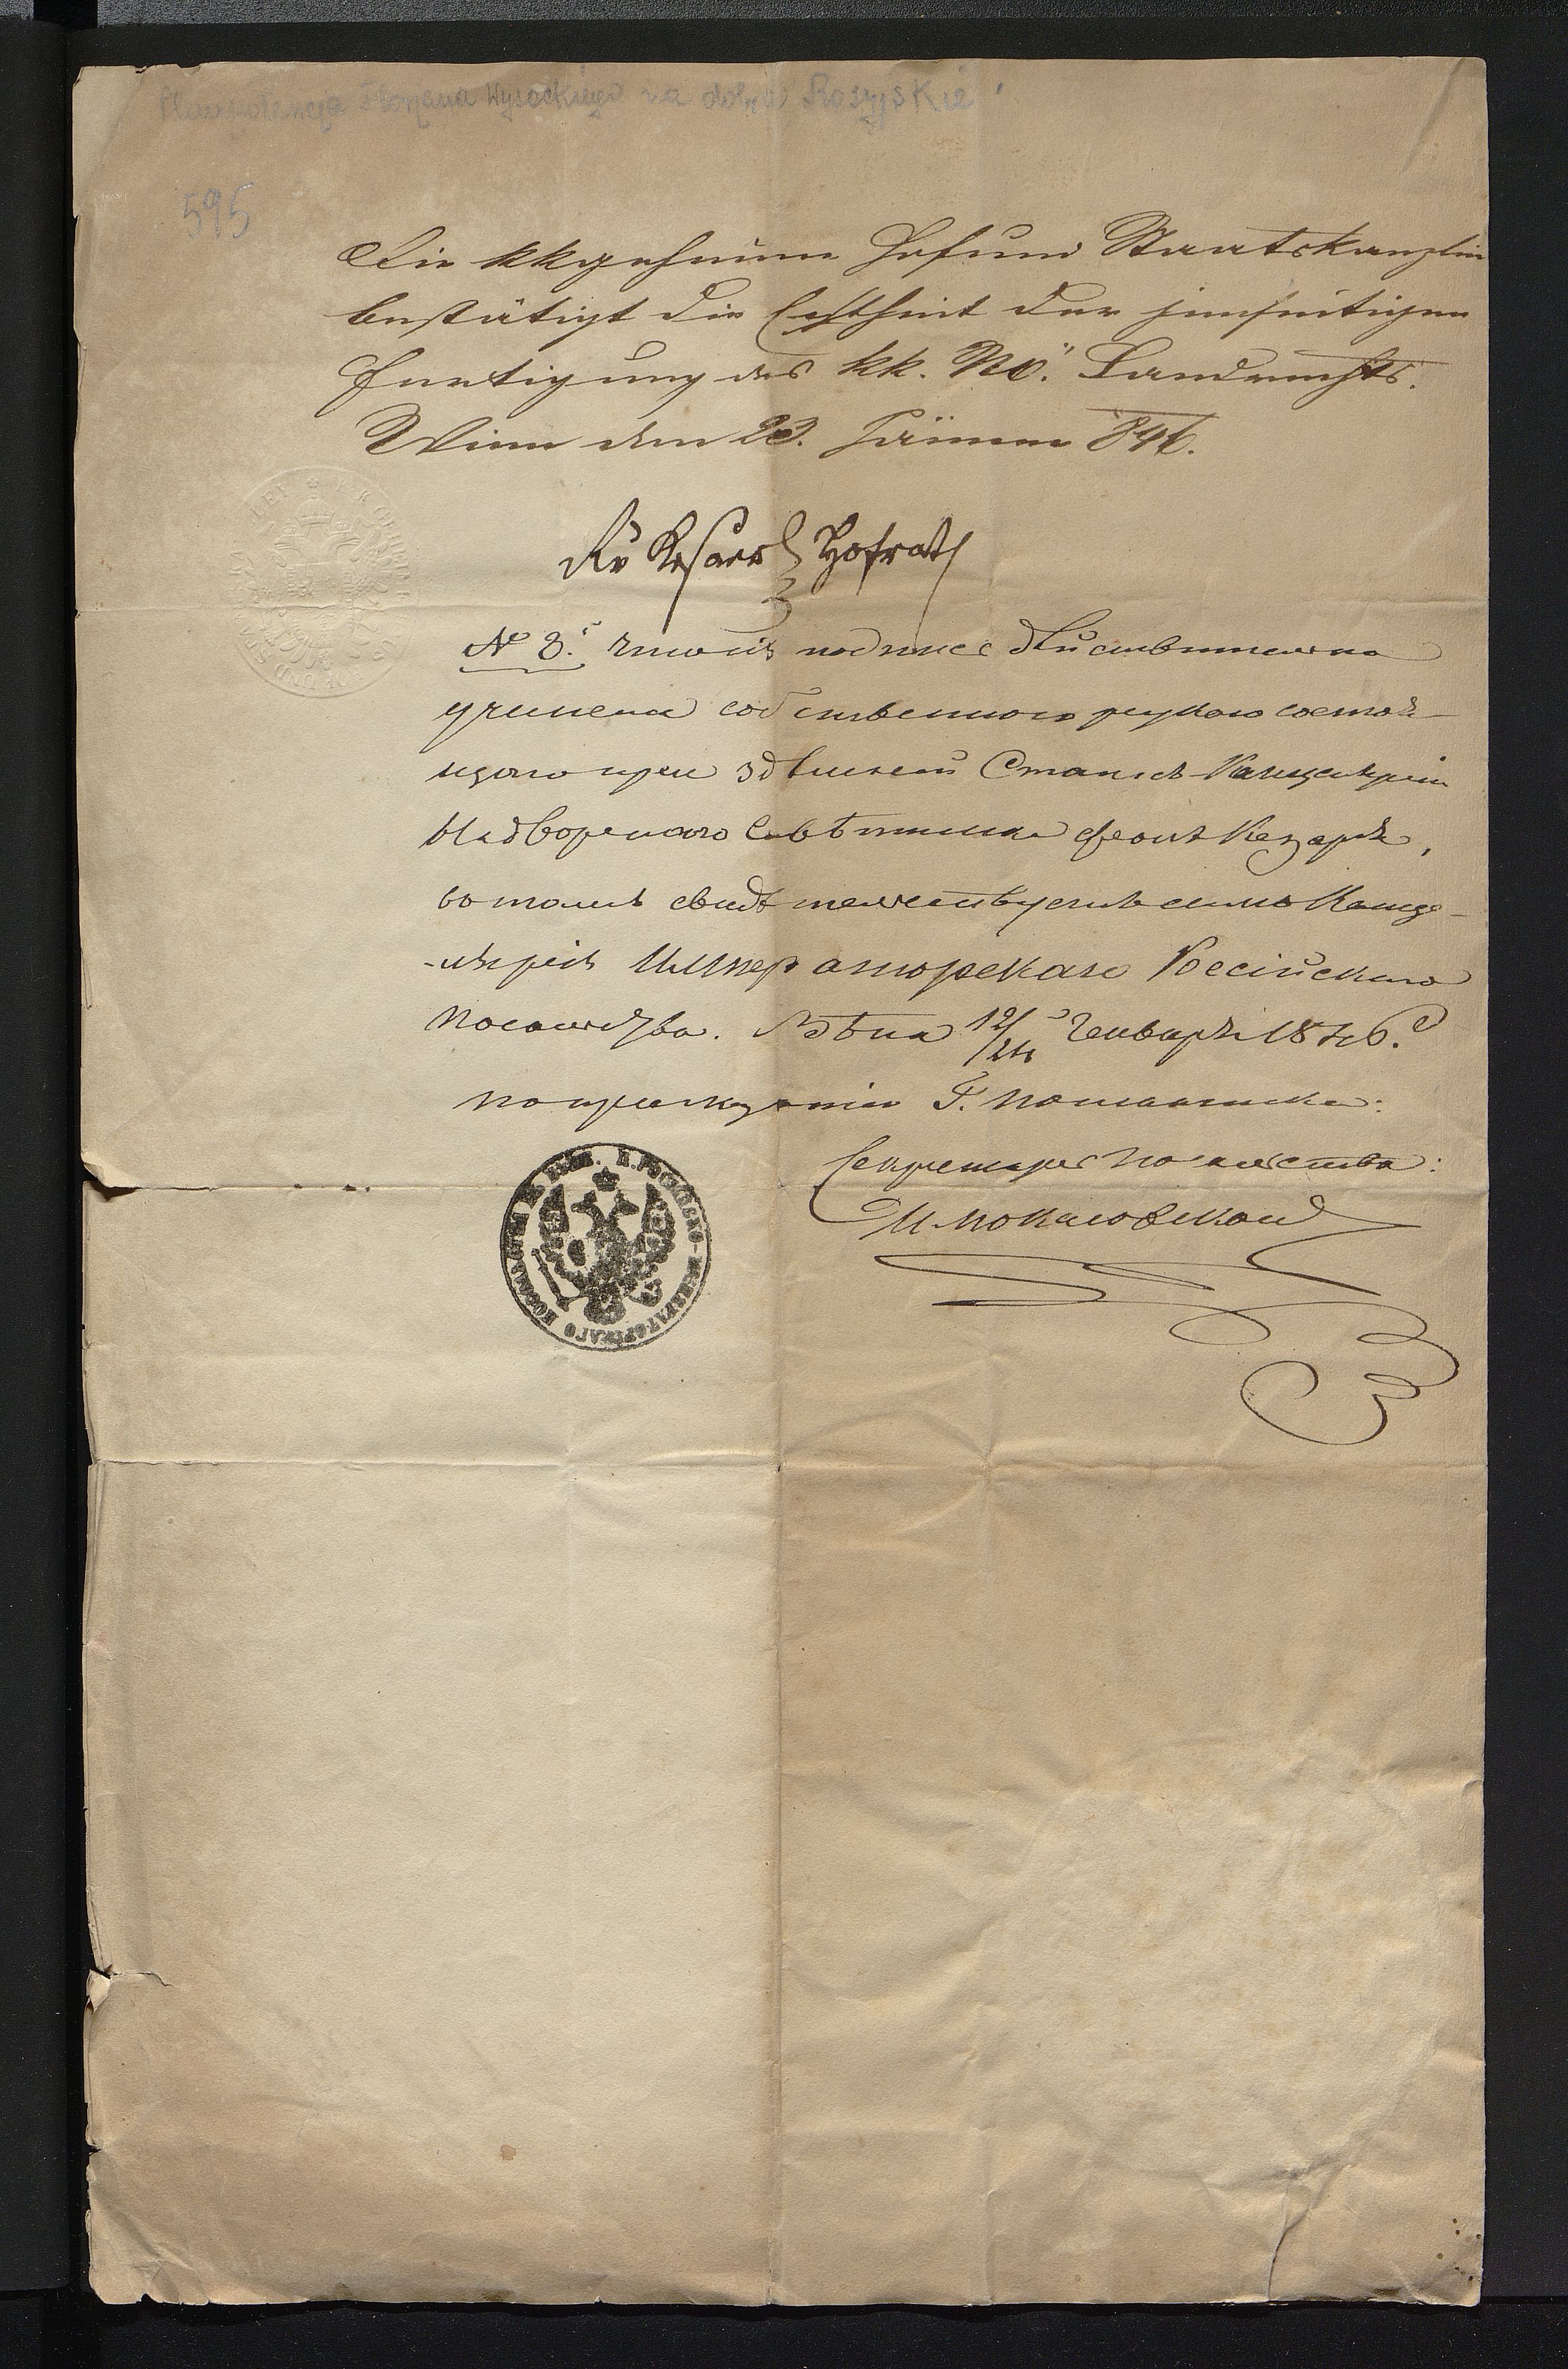 Plenipotencja Floryana Wysockiego na dobra Rosyjskie
595
Die kk geheime Hof und Staatskanzlei
bestätigt die Echtheit der jenseitigen
Fertigung des kk. NÖ. Landrechts.
Wien den 23. Jänner 846.
Hofrath
№ 8. Что сія подпись дѣйствительно
учинена собственною рукою состоя-
щаго при здѣшней Статсъ-Канцеляріи
Надворнаго Совѣтника фонъ Кезаръ,
въ томъ свидѣтельствуетъ симъ Канце-
-лярія Императорскаго Россійскаго
Посольства. Вѣна 12/24 Генваря 1846.
По приказанію Г. Посланника:
Секретарь Посольства: